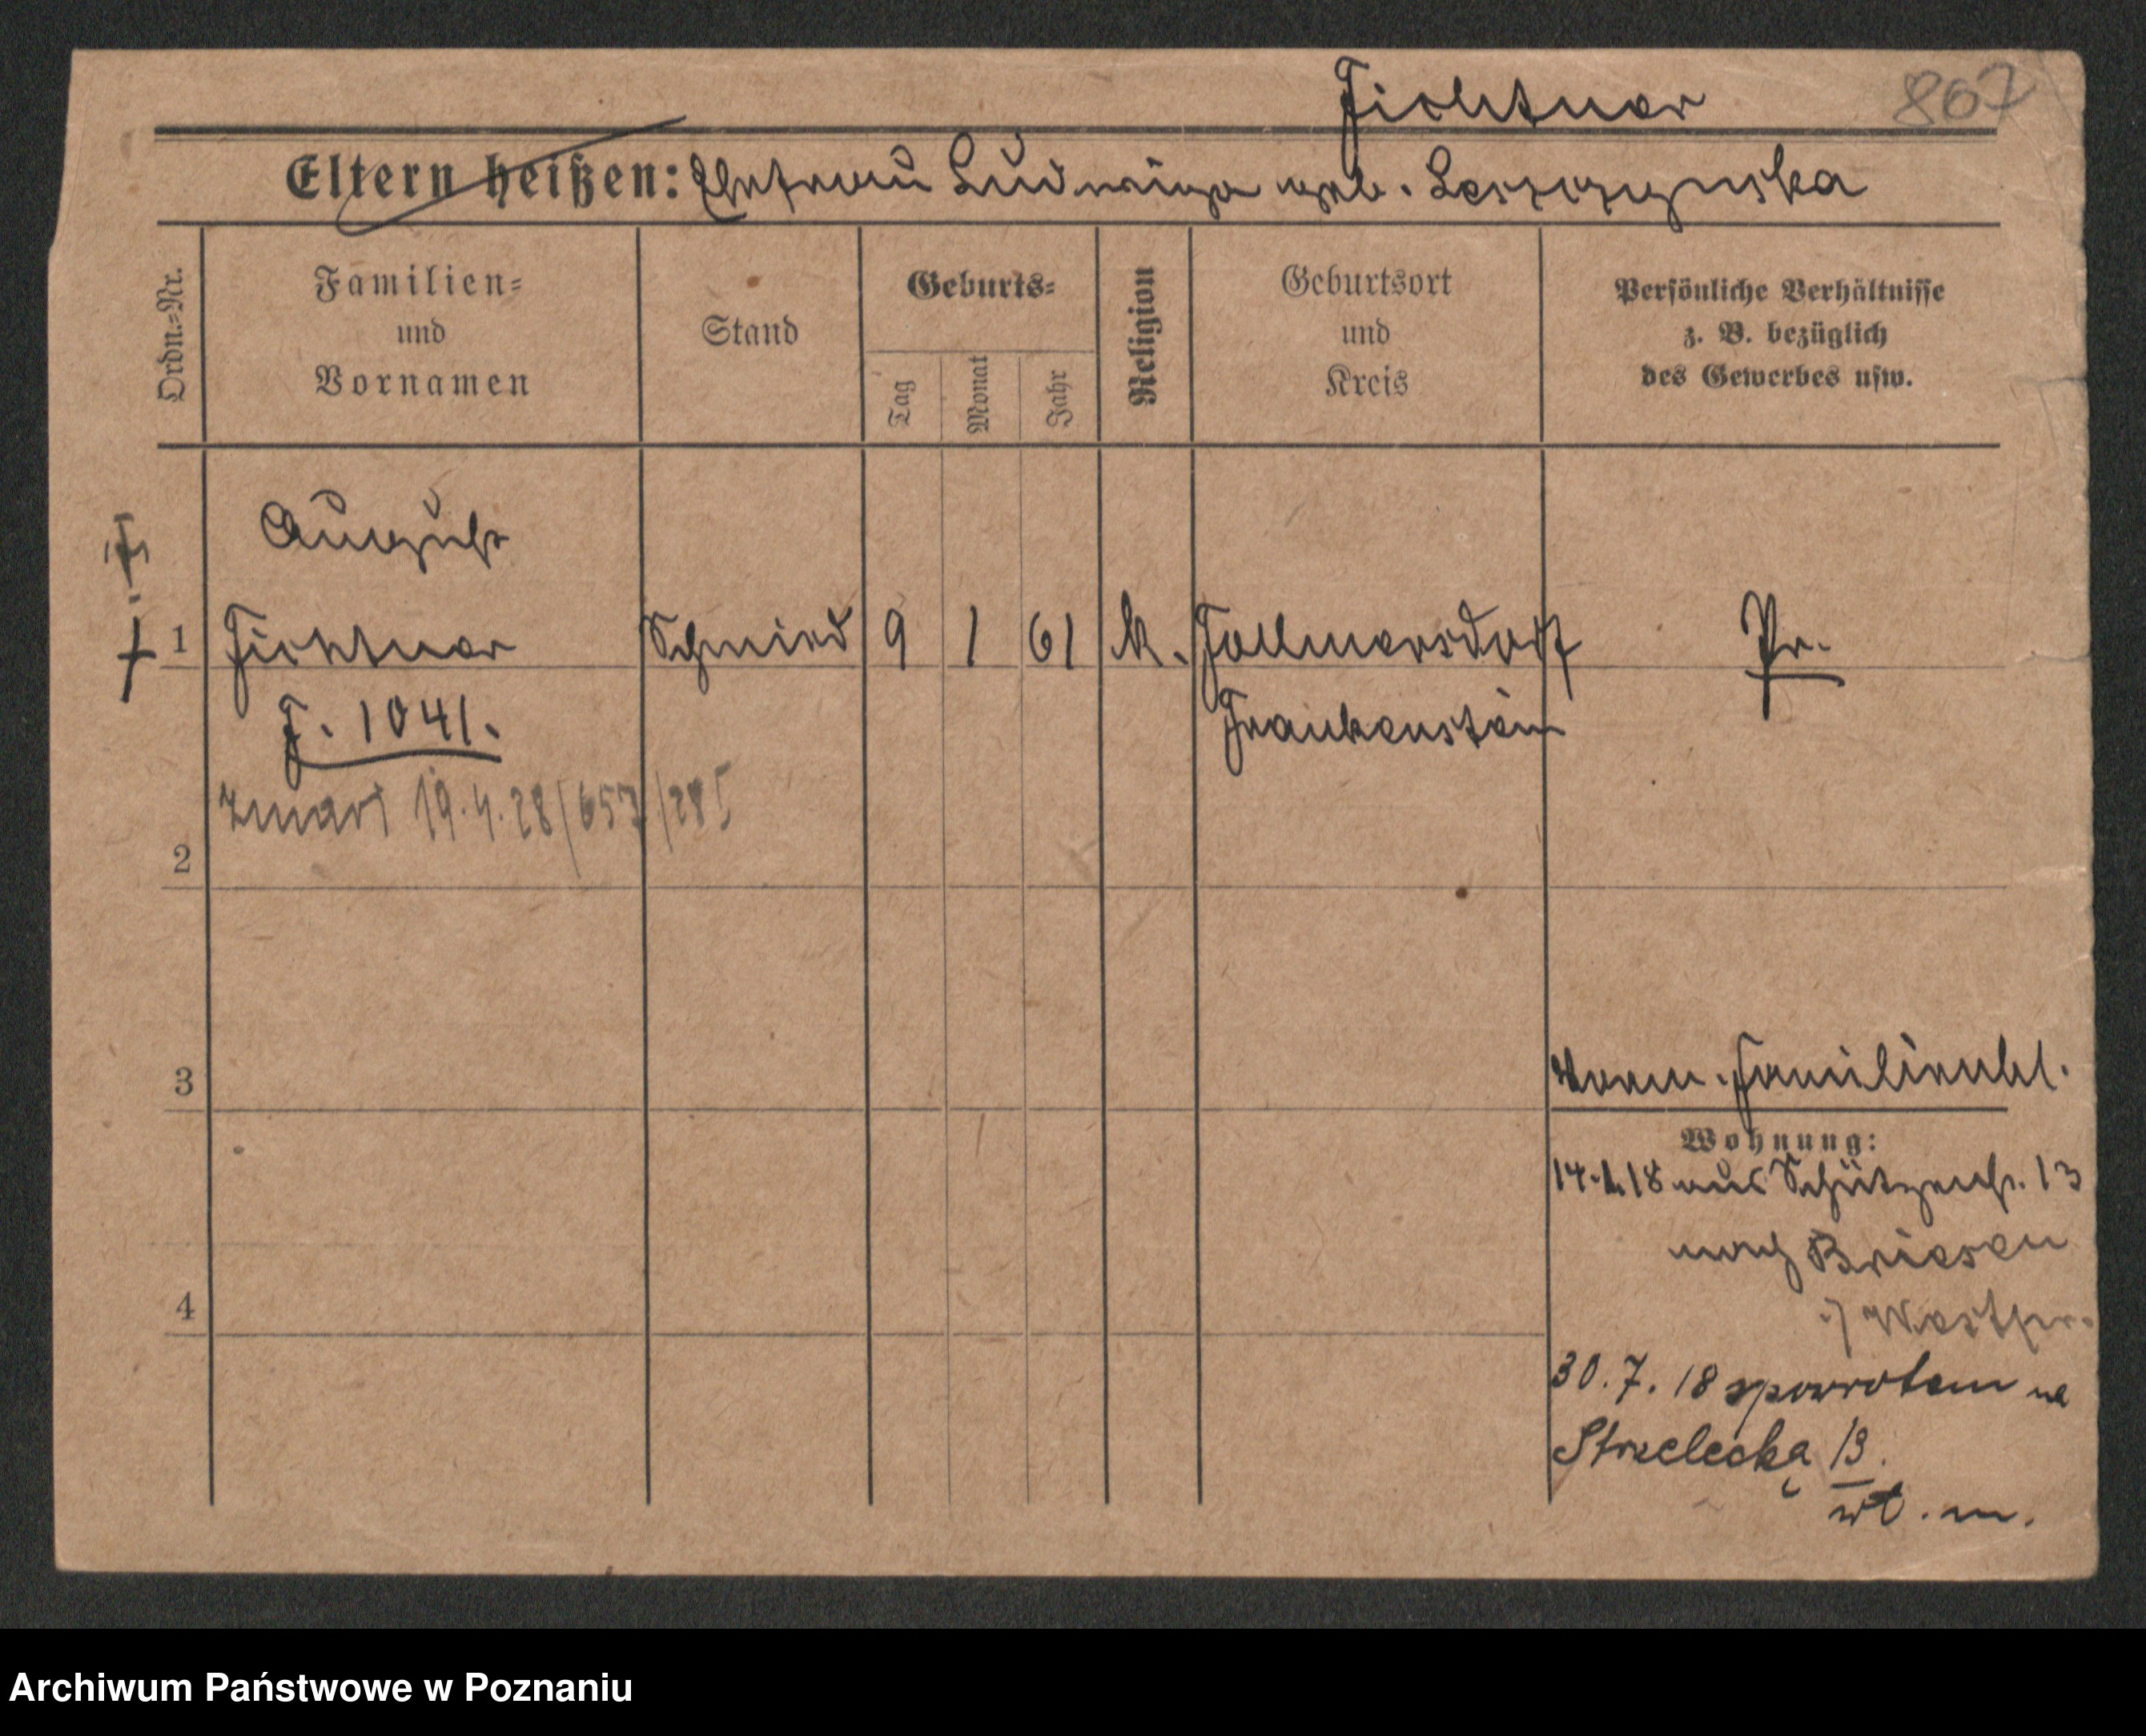 Fichtner 867
Eltern heißen: Ehefrau Ludwiga geb. Leszczynska
Ordn.=Nr.
Familien=
und
Vornamen
Stand
Geburts=
Tag
Monat
Jahr
Religion
Geburtsort
und
Kreis
Persönliche Verhältnisse
z. B. bezüglich
des Gewerbes usw.
August
1 Fichtner Schmied 9 1 61 k. Follmersdorf Pr.
F. 1041. Frankenstein
zmarł 19.4.28/653/28
2
3
Familienbl.
Wohnung:
14.1.18 aus Schützenstr. 13
nach Briesen
Westpr.
4
30.7.18 spowrotem na
Strzelecką 13.
wt. m.
Archiwum Państwowe w Poznaniu